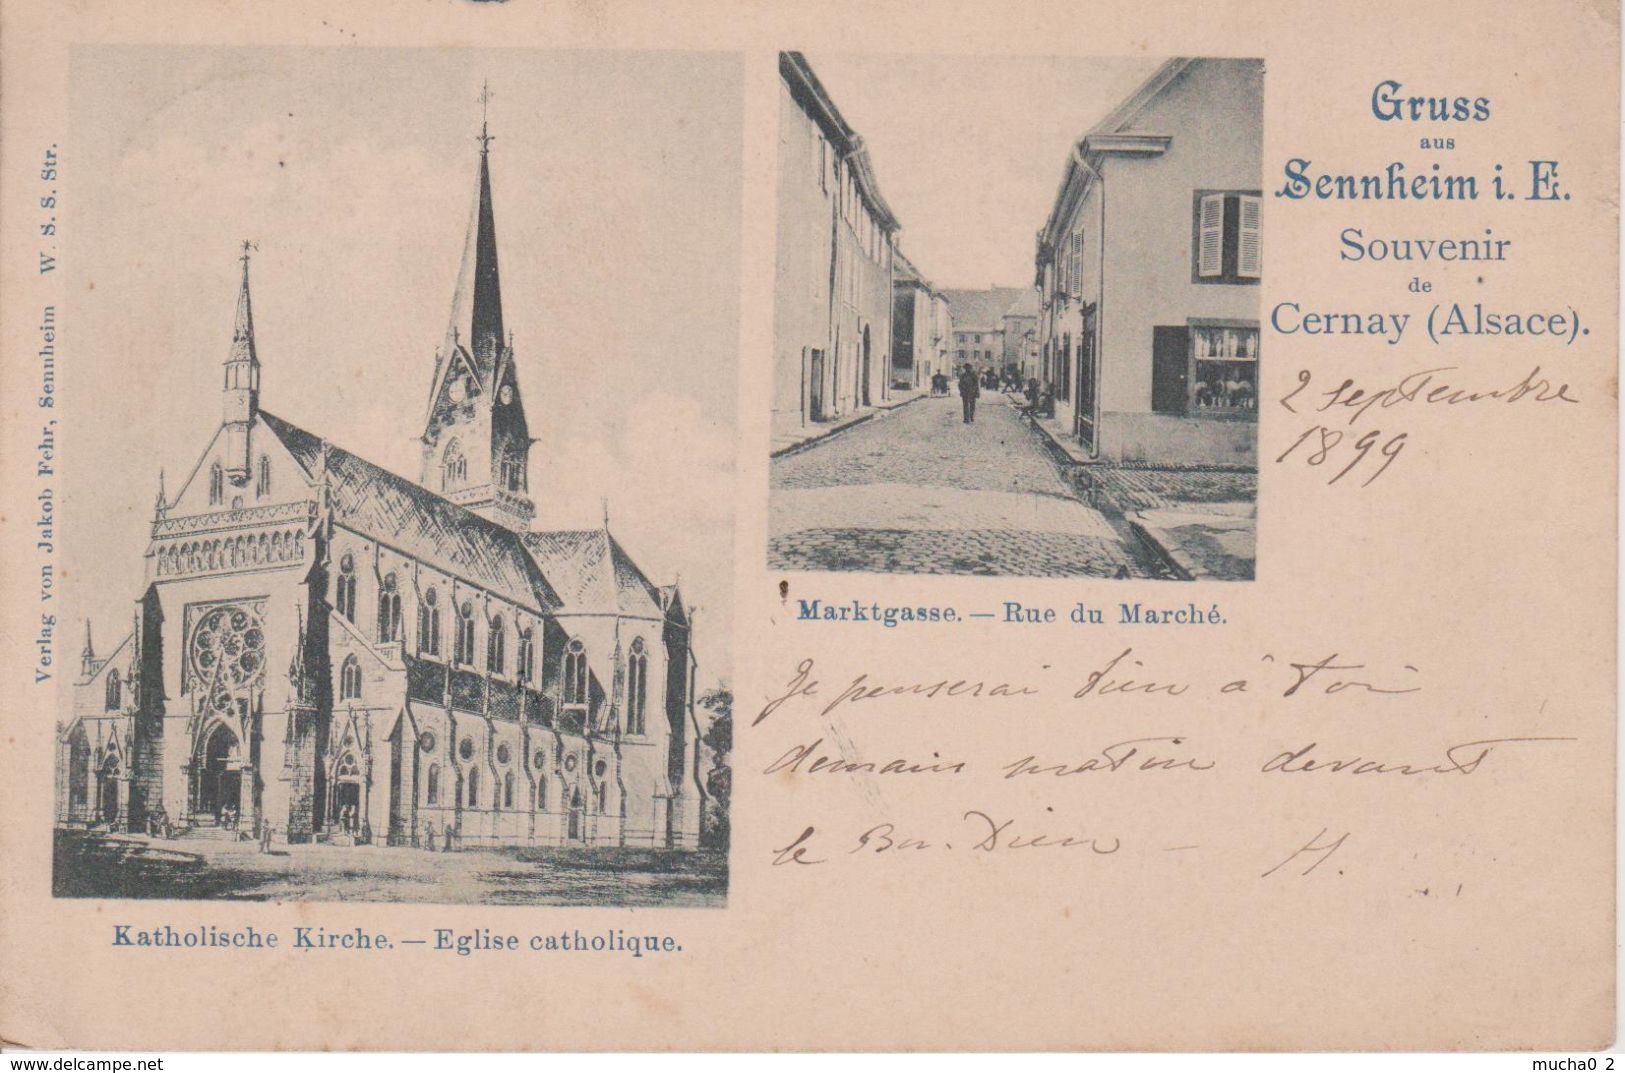 Gruss
aus
Sennheim i. E.
Souvenir
de
Cernay (Alsace).
2 septembre
1899
Verlag von Jakob Fehr, Sennheim W. S. S. Str.
Marktgasse. — Rue du Marché.
Je penserai bien à toi
demain matin devant
le Bon. Dieu — H.
Katholische Kirche. — Eglise catholique.
www.delcampe.net
mucha0 2